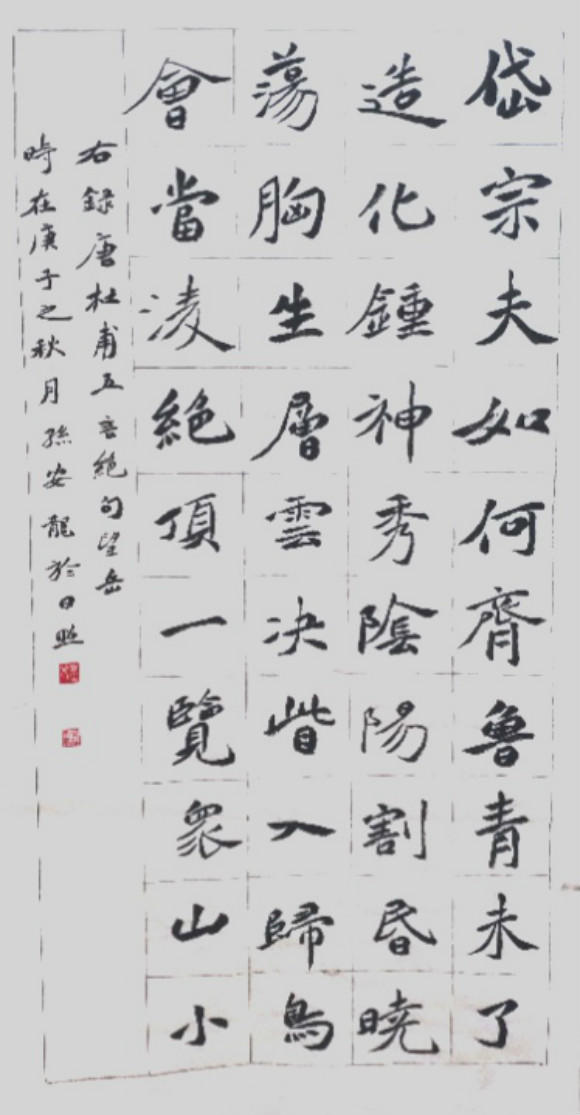 岱宗夫如何齊魯青未了
造化鍾神秀陰陽割昏曉
蕩胸生層雲决眥入歸鳥
會當凌絕頂一覽衆山小
右録唐杜甫五言絶句望岳
時在庚子之秋月孫安龍於日照